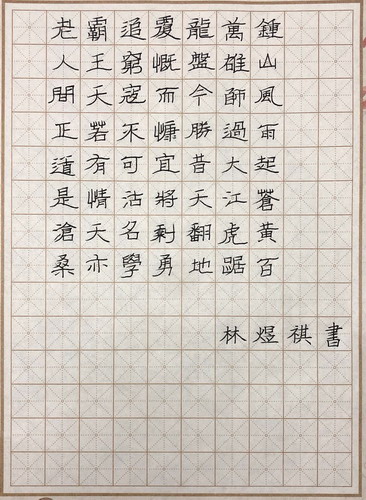 鍾山風雨起蒼黃百
萬雄師過大江虎踞
龍盤今勝昔天翻地
覆慨而慷宜將剩勇
追窮寇不可沽名學
霸王天若有情天亦
老人間正道是滄桑
林煜祺書